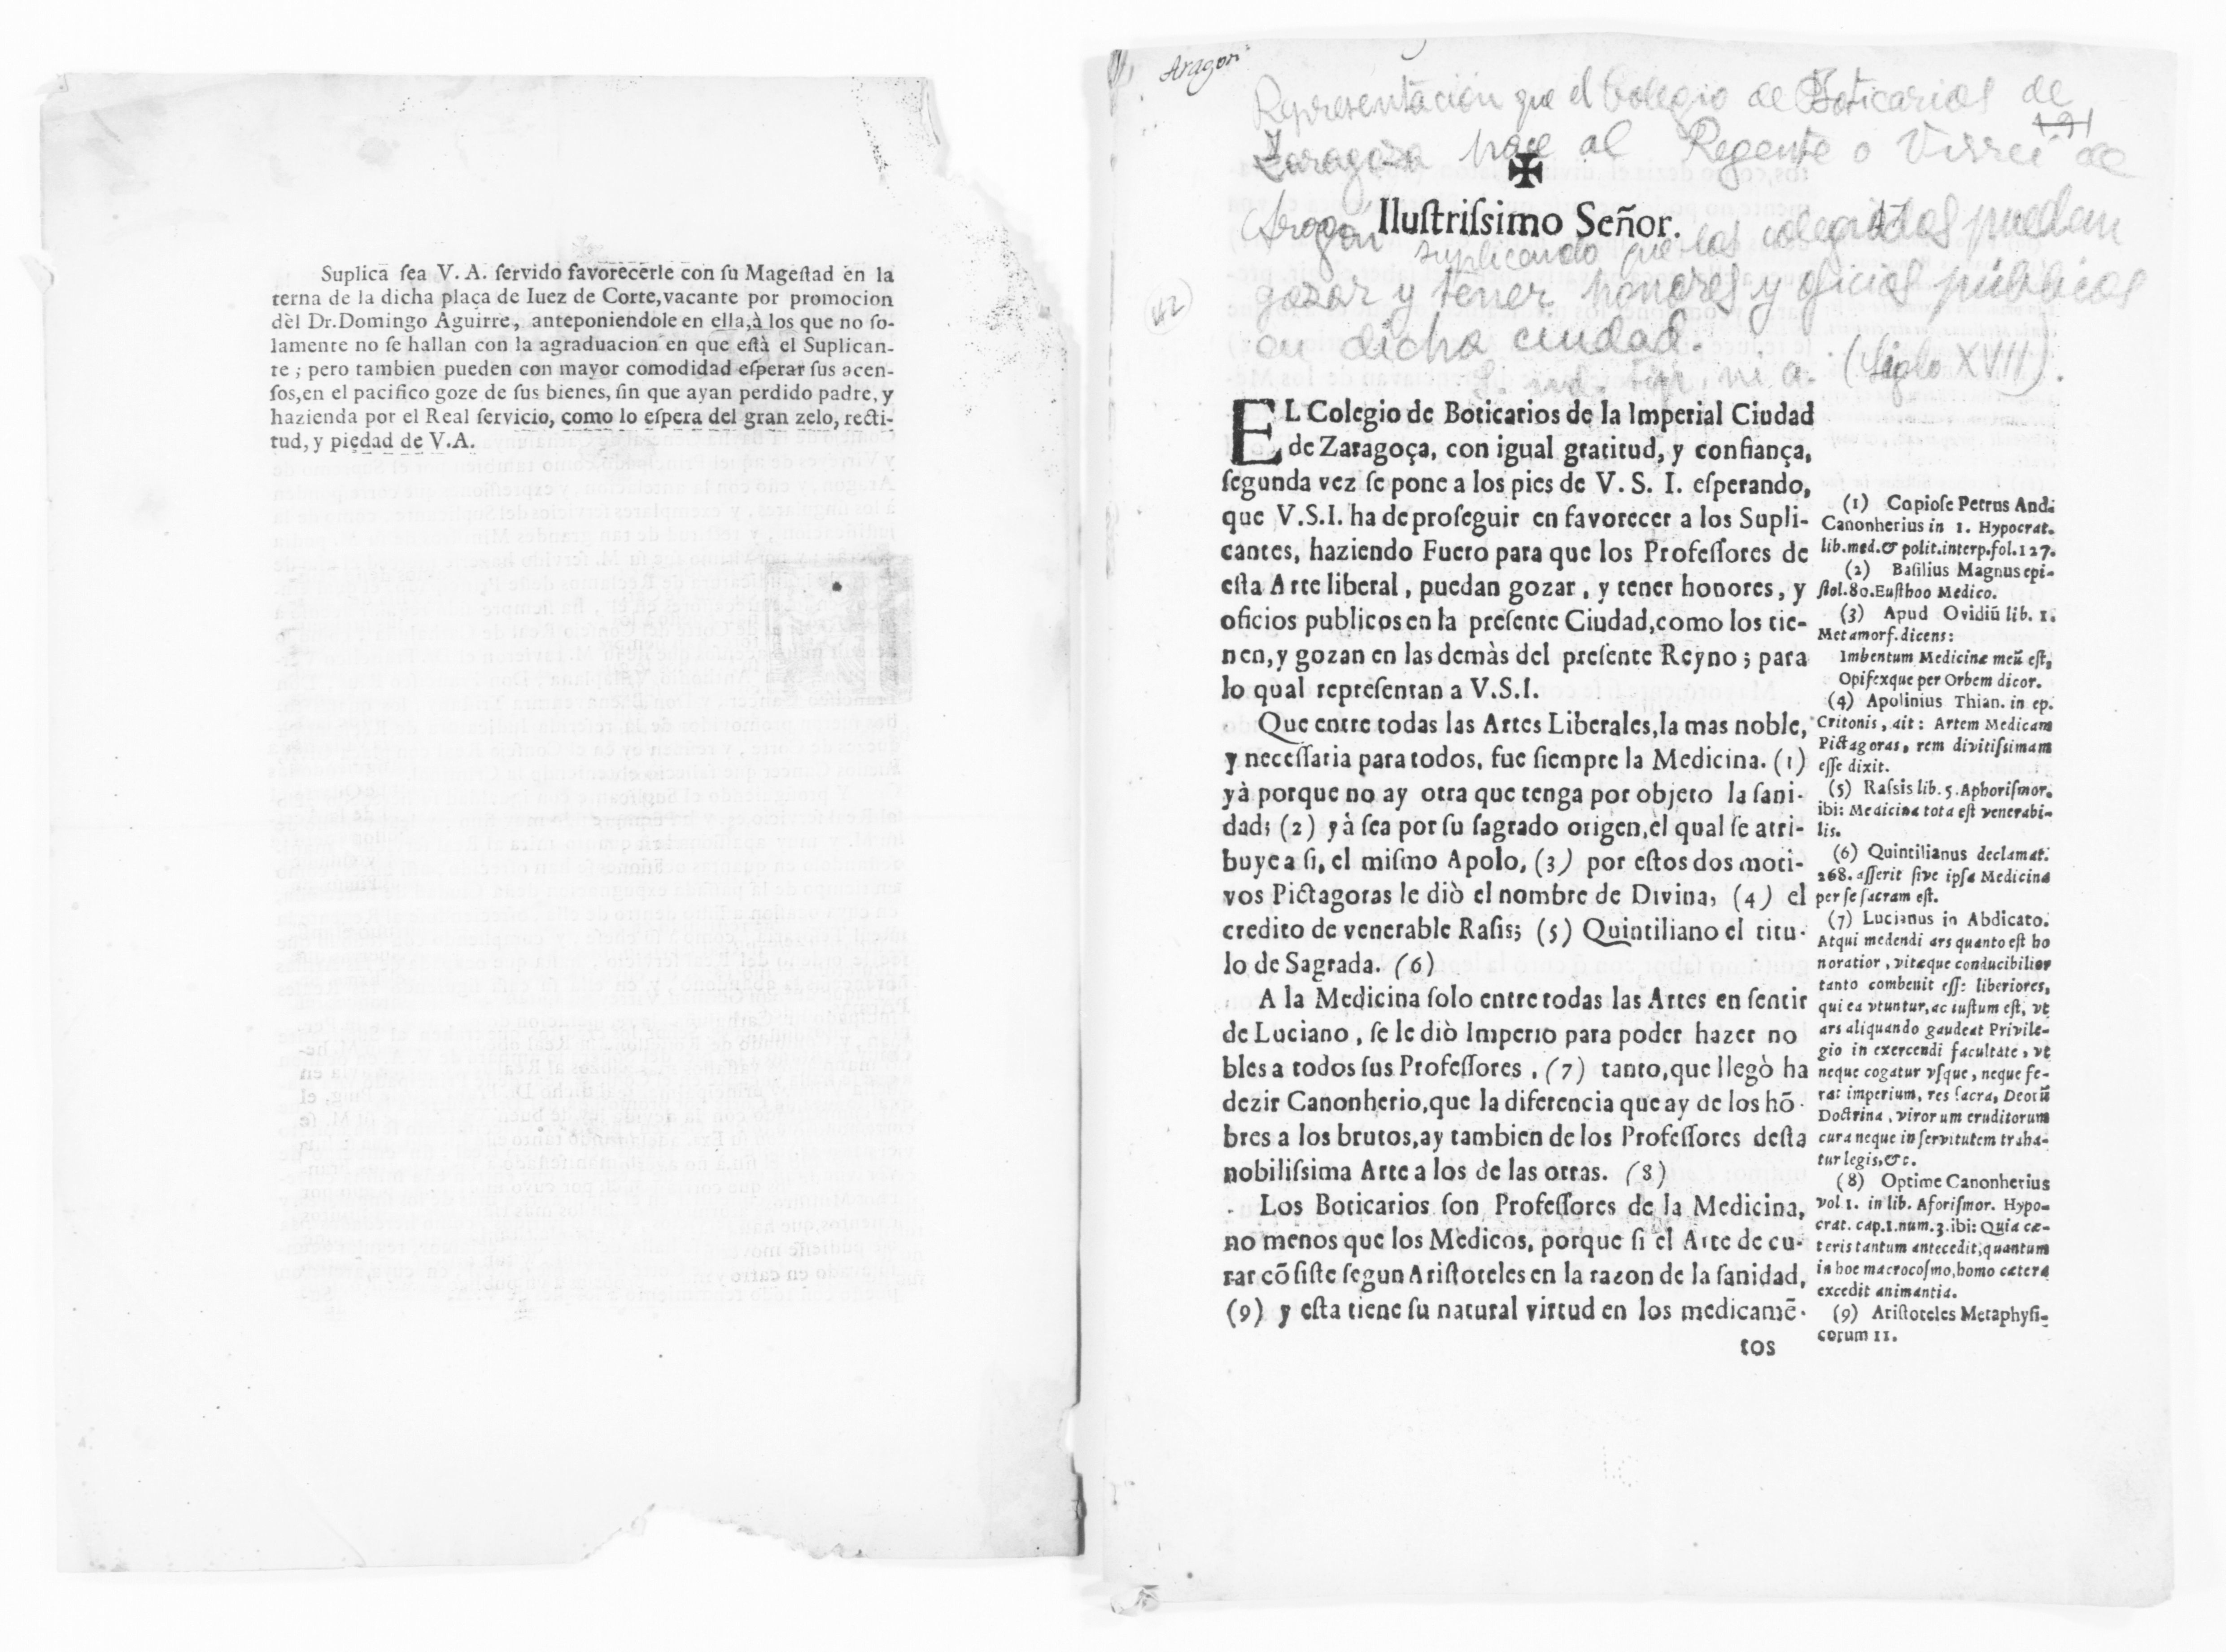 Suplica ſea V. A. ſervido favorecerle con ſu Mageſtad en la
terna de la dicha plaça de Iuez de Corte,vacante por promocion
del Dr.Domingo Aguirre, anteponiendole en ella,à los que no ſo-
lamente no ſe hallan con la agraduacion en que eſtà el Suplican-
te ; pero tambien pueden con mayor comodidad eſperar ſus acen-
ſos,en el pacifico goze de ſus bienes, ſin que ayan perdido padre, y
hazienda por el Real ſervicio, como lo eſpera del gran zelo, recti-
tud, y piedad de V.A.
Aragon
Representacion que el Colegio de Boticarios de
Zaragoza hace al Regente o Virrei de
Aragón suplicando que los colegiados puedan
gozar y tener honores y oficios públicos
en dicha ciudad.
(Siglo XVII).
42
✠
Iluſtriſsimo Señor.
EL Colegio de Boticarios de la Imperial Ciudad
de Zaragoça, con igual gratitud, y confiança,
ſegunda vez ſe pone a los pies de V. S. I. eſperando,
que V.S.I. ha de proſeguir en favorecer a los Supli-
cantes, haziendo Fuero para que los Profeſſores de
eſta Arte liberal, puedan gozar, y tener honores, y
oficios publicos en la preſente Ciudad,como los tie-
nen,y gozan en las demàs del preſente Reyno; para
lo qual repreſentan a V.S.I.
Que entre todas las Artes Liberales,la mas noble,
y neceſſaria para todos, fue ſiempre la Medicina. (1)
yà porque no ay otra que tenga por objeto la ſani-
dad; (2) yà ſea por ſu ſagrado origen,el qual ſe atri-
buye a ſi, el miſmo Apolo, (3) por eſtos dos moti-
vos Pictagoras le diò el nombre de Divina, (4) el
credito de venerable Raſis; (5) Quintiliano el titu-
lo de Sagrada. (6)
A la Medicina ſolo entre todas las Artes en ſentir
de Luciano, ſe le diò Imperio para poder hazer no
bles a todos ſus Profeſſores, (7) tanto,que llegò ha
dezir Canonherio,que la diferencia que ay de los hō-
bres a los brutos,ay tambien de los Profeſſores deſta
nobiliſsima Arte a los de las otras. (8)
Los Boticarios ſon Profeſſores de la Medicina,
no menos que los Medicos, porque ſi el Arte de cu-
rar cōſiſte ſegun Ariſtoteles en la razon de la ſanidad,
(9) y eſta tiene ſu natural virtud en los medicamē-
tos
(1) Copioſe Petrus And.
Canonherius in 1. Hypocrat.
lib.med.& polit.interp.fol.127.
(2) Baſilius Magnus epi-
ſtol.80.Euſthoo Medico.
(3) Apud Ovidiū lib. 1.
Metamorf.dicens:
Imbentum Medicinæ meū eſt,
Opifexque per Orbem dicor.
(4) Apolinius Thian. in ep.
Critonis, ait: Artem Medicam
Pictagoras, rem divitiſsimam
eſſe dixit.
(5) Raſsis lib. 5. Aphoriſmor.
ibi: Medicina tota eſt venerabi-
lis.
(6) Quintilianus declamat.
268. aſſerit ſive ipſa Medicina
per ſe ſacram eſt.
(7) Lucianus in Abdicato.
Atqui medendi ars quanto eſt ho
noratior, vitæque conducibilior
tanto combenit eſſe liberiores,
qui ea vtuntur,ac iuſtum eſt, vt
ars aliquando gaudeat Privile-
gio in exercendi facultate, vt
neque cogatur vſque, neque fe-
rat imperium, res ſacra, Deorū
Doctrina, virorum eruditorum
cura neque in ſervitutem traha-
tur legis,&c.
(8) Optime Canonherius
vol 1. in lib. Aforiſmor. Hypo-
crat. cap.1.num.3.ibi: Quia cæ-
teris tantum antecedit,quantum
in hoc macrocoſmo,homo cætera
excedit animantia.
(9) Ariſtoteles Metaphyſi-
corum 11.